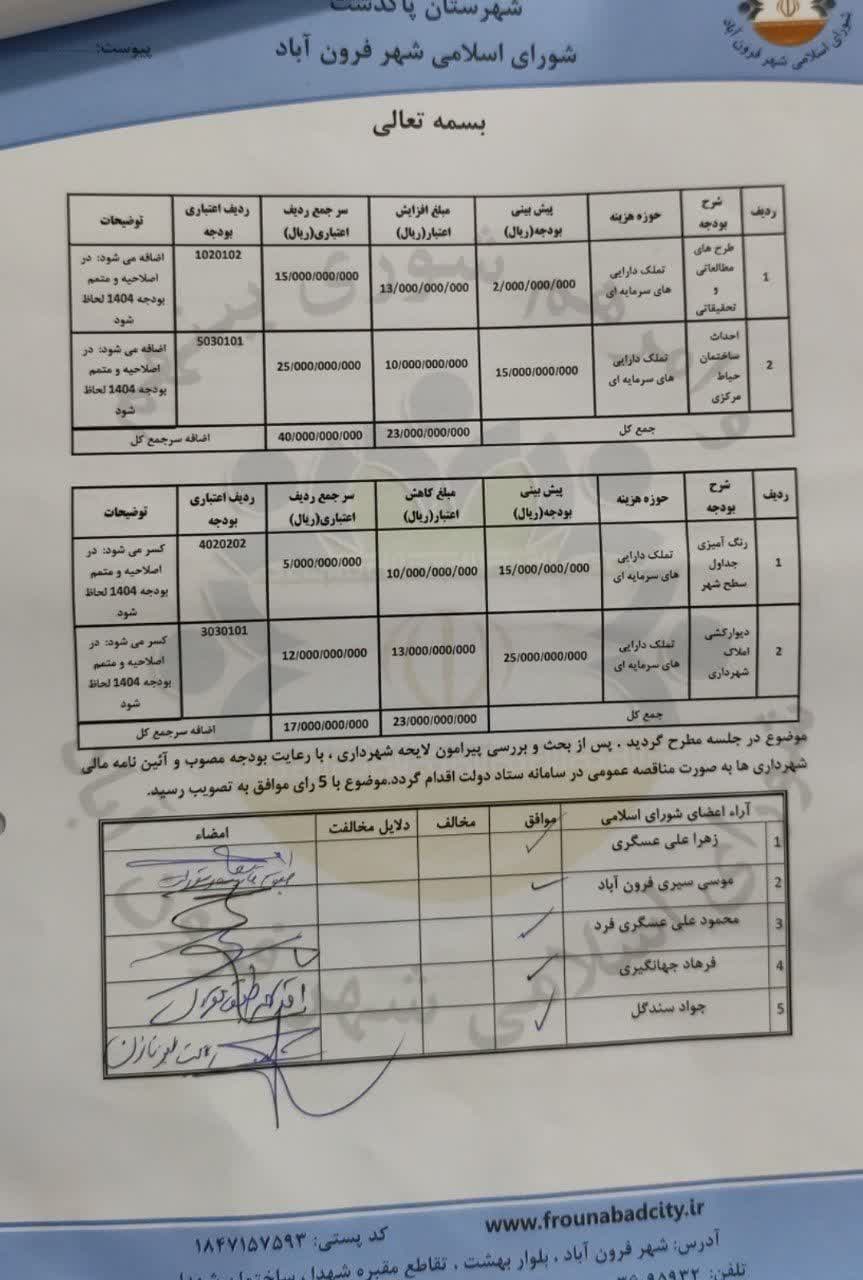 شهرستان پاکدشت
شورای اسلامی شهر فرون آباد
پیوست:
شورای اسلامی شهر فرون آباد
بسمه تعالی
ردیف | شرح بودجه | حوزه هزینه | پیش بینی بودجه(ریال) | مبلغ افزایش اعتبار(ریال) | سر جمع ردیف اعتباری(ریال) | ردیف اعتباری بودجه | توضیحات
1 | طرح های مطالعاتی و تحقیقاتی | تملک دارایی های سرمایه ای | 2/000/000/000 | 13/000/000/000 | 15/000/000/000 | 1020102 | اضافه می شود: در اصلاحیه و متمم بودجه 1404 لحاظ شود
2 | احداث ساختمان حیاط مرکزی | تملک دارایی های سرمایه ای | 15/000/000/000 | 10/000/000/000 | 25/000/000/000 | 5030101 | اضافه می شود: در اصلاحیه و متمم بودجه 1404 لحاظ شود
جمع کل | 23/000/000/000 | 40/000/000/000 | اضافه سرجمع کل
ردیف | شرح بودجه | حوزه هزینه | پیش بینی بودجه(ریال) | مبلغ کاهش اعتبار(ریال) | سر جمع ردیف اعتباری(ریال) | ردیف اعتباری بودجه | توضیحات
1 | رنگ آمیزی جداول سطح شهر | تملک دارایی های سرمایه ای | 15/000/000/000 | 10/000/000/000 | 5/000/000/000 | 4020202 | کسر می شود: در اصلاحیه و متمم بودجه 1404 لحاظ شود
2 | دیوارکشی املاک شهرداری | تملک دارایی های سرمایه ای | 25/000/000/000 | 13/000/000/000 | 12/000/000/000 | 3030101 | کسر می شود: در اصلاحیه و متمم بودجه 1404 لحاظ شود
جمع کل | 23/000/000/000 | 17/000/000/000 | اضافه سرجمع کل
موضوع در جلسه مطرح گردید ، پس از بحث و بررسی پیرامون لایحه شهرداری ، با رعایت بودجه مصوب و آئین نامه مالی
شهرداری ها به صورت مناقصه عمومی در سامانه ستاد دولت اقدام گردد.موضوع با 5 رای موافق به تصویب رسید.
آراء اعضای شورای اسلامی | موافق | مخالف | دلایل مخالفت | امضاء
1 | زهرا علی عسگری
2 | موسی سیری فرون آباد
3 | محمود علی عسگری فرد
4 | فرهاد جهانگیری
5 | جواد سندگل
www.frounabadcity.ir
کد پستی: ۱۸۴۷۱۵۷۵۹۳
آدرس: شهر فرون آباد ، بلوار بهشت ، تقاطع مقبره شهدا، ساختمان
تلفن: